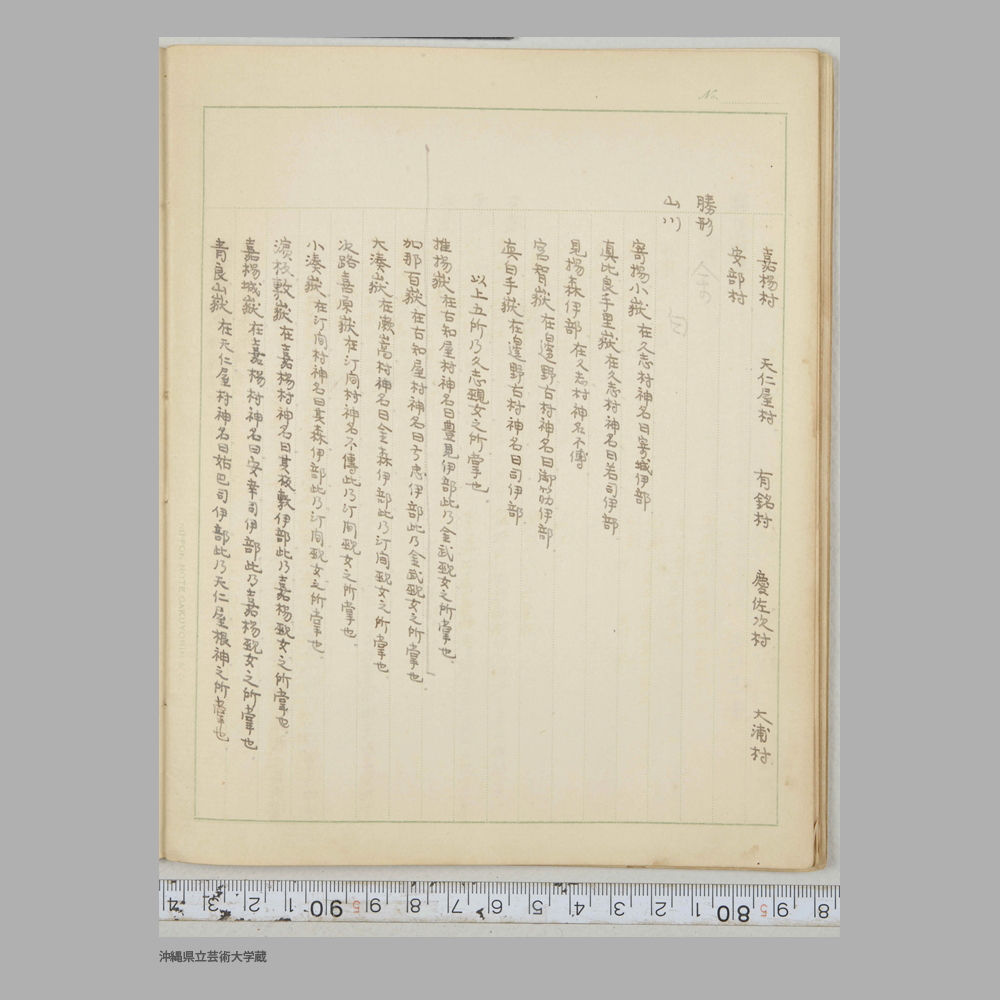 嘉楊村 天仁屋村 有銘村 慶佐次村 大浦村
安部村
勝形
山川
寄揚小嶽 在久志村神名曰寄城伊部
真比良手里嶽 在久志村神名曰若司伊部
見揚森伊部 在久志村神名不傳
宮智嶽 在邊野古村神名曰御筋伊部
真白手嶽 在邊野古村神名曰司伊部
以上五所乃久志覡女之所掌也
推揚嶽 在古知屋村神名曰豊見伊部此乃金武覡女之所掌也
加那百嶽 在古知屋村神名曰 忠伊部此乃金武覡女之所掌也
大湊嶽 在瀬嵩村神名曰金森伊部此乃汀間覡女之所掌也
次路喜原嶽 在汀間村神名不傳此乃汀間覡女之所掌也
小湊嶽 在汀間村神名曰其森伊部此乃汀間覡女之所掌也
濵板敷嶽 在嘉楊村神名曰其板敷伊部此乃嘉楊覡女之所掌也
嘉楊城嶽 在嘉楊村神名曰安幸司伊部此乃嘉楊覡女之所掌也
青良山嶽 在天仁屋村神名曰姑巴司伊部此乃天仁屋根神之所掌也
4 3 2 1 90 9 8 7 6 5 4 3 2 1 80 9 8
沖縄県立芸術大学蔵